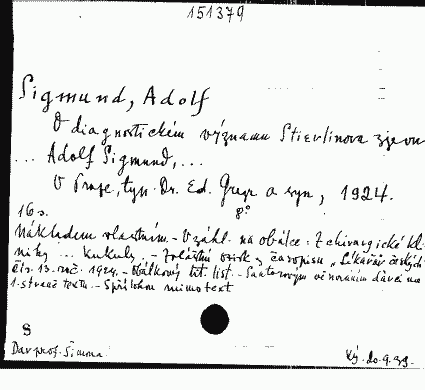 151379
Sigmund, Adolf
O diagnostickém významu Stierlinova zjevu
... Adolf Sigmund, ...
V Praze, typ. Dr. Ed. Gregr a syn, 1924.
16 s. 8°
Nákladem vlastním. - V záhl. na obálce: Z chirurgické kli-
niky ... Kukuly. - Zvláštní otisk z časopisu "Lékařů českých"
čís. 13. roč. 1924. - Obálkový tit. list. - S autorovým věnováním na
1. straně textu. - Spříloham mimo text
8
Dar prof. Šimma.